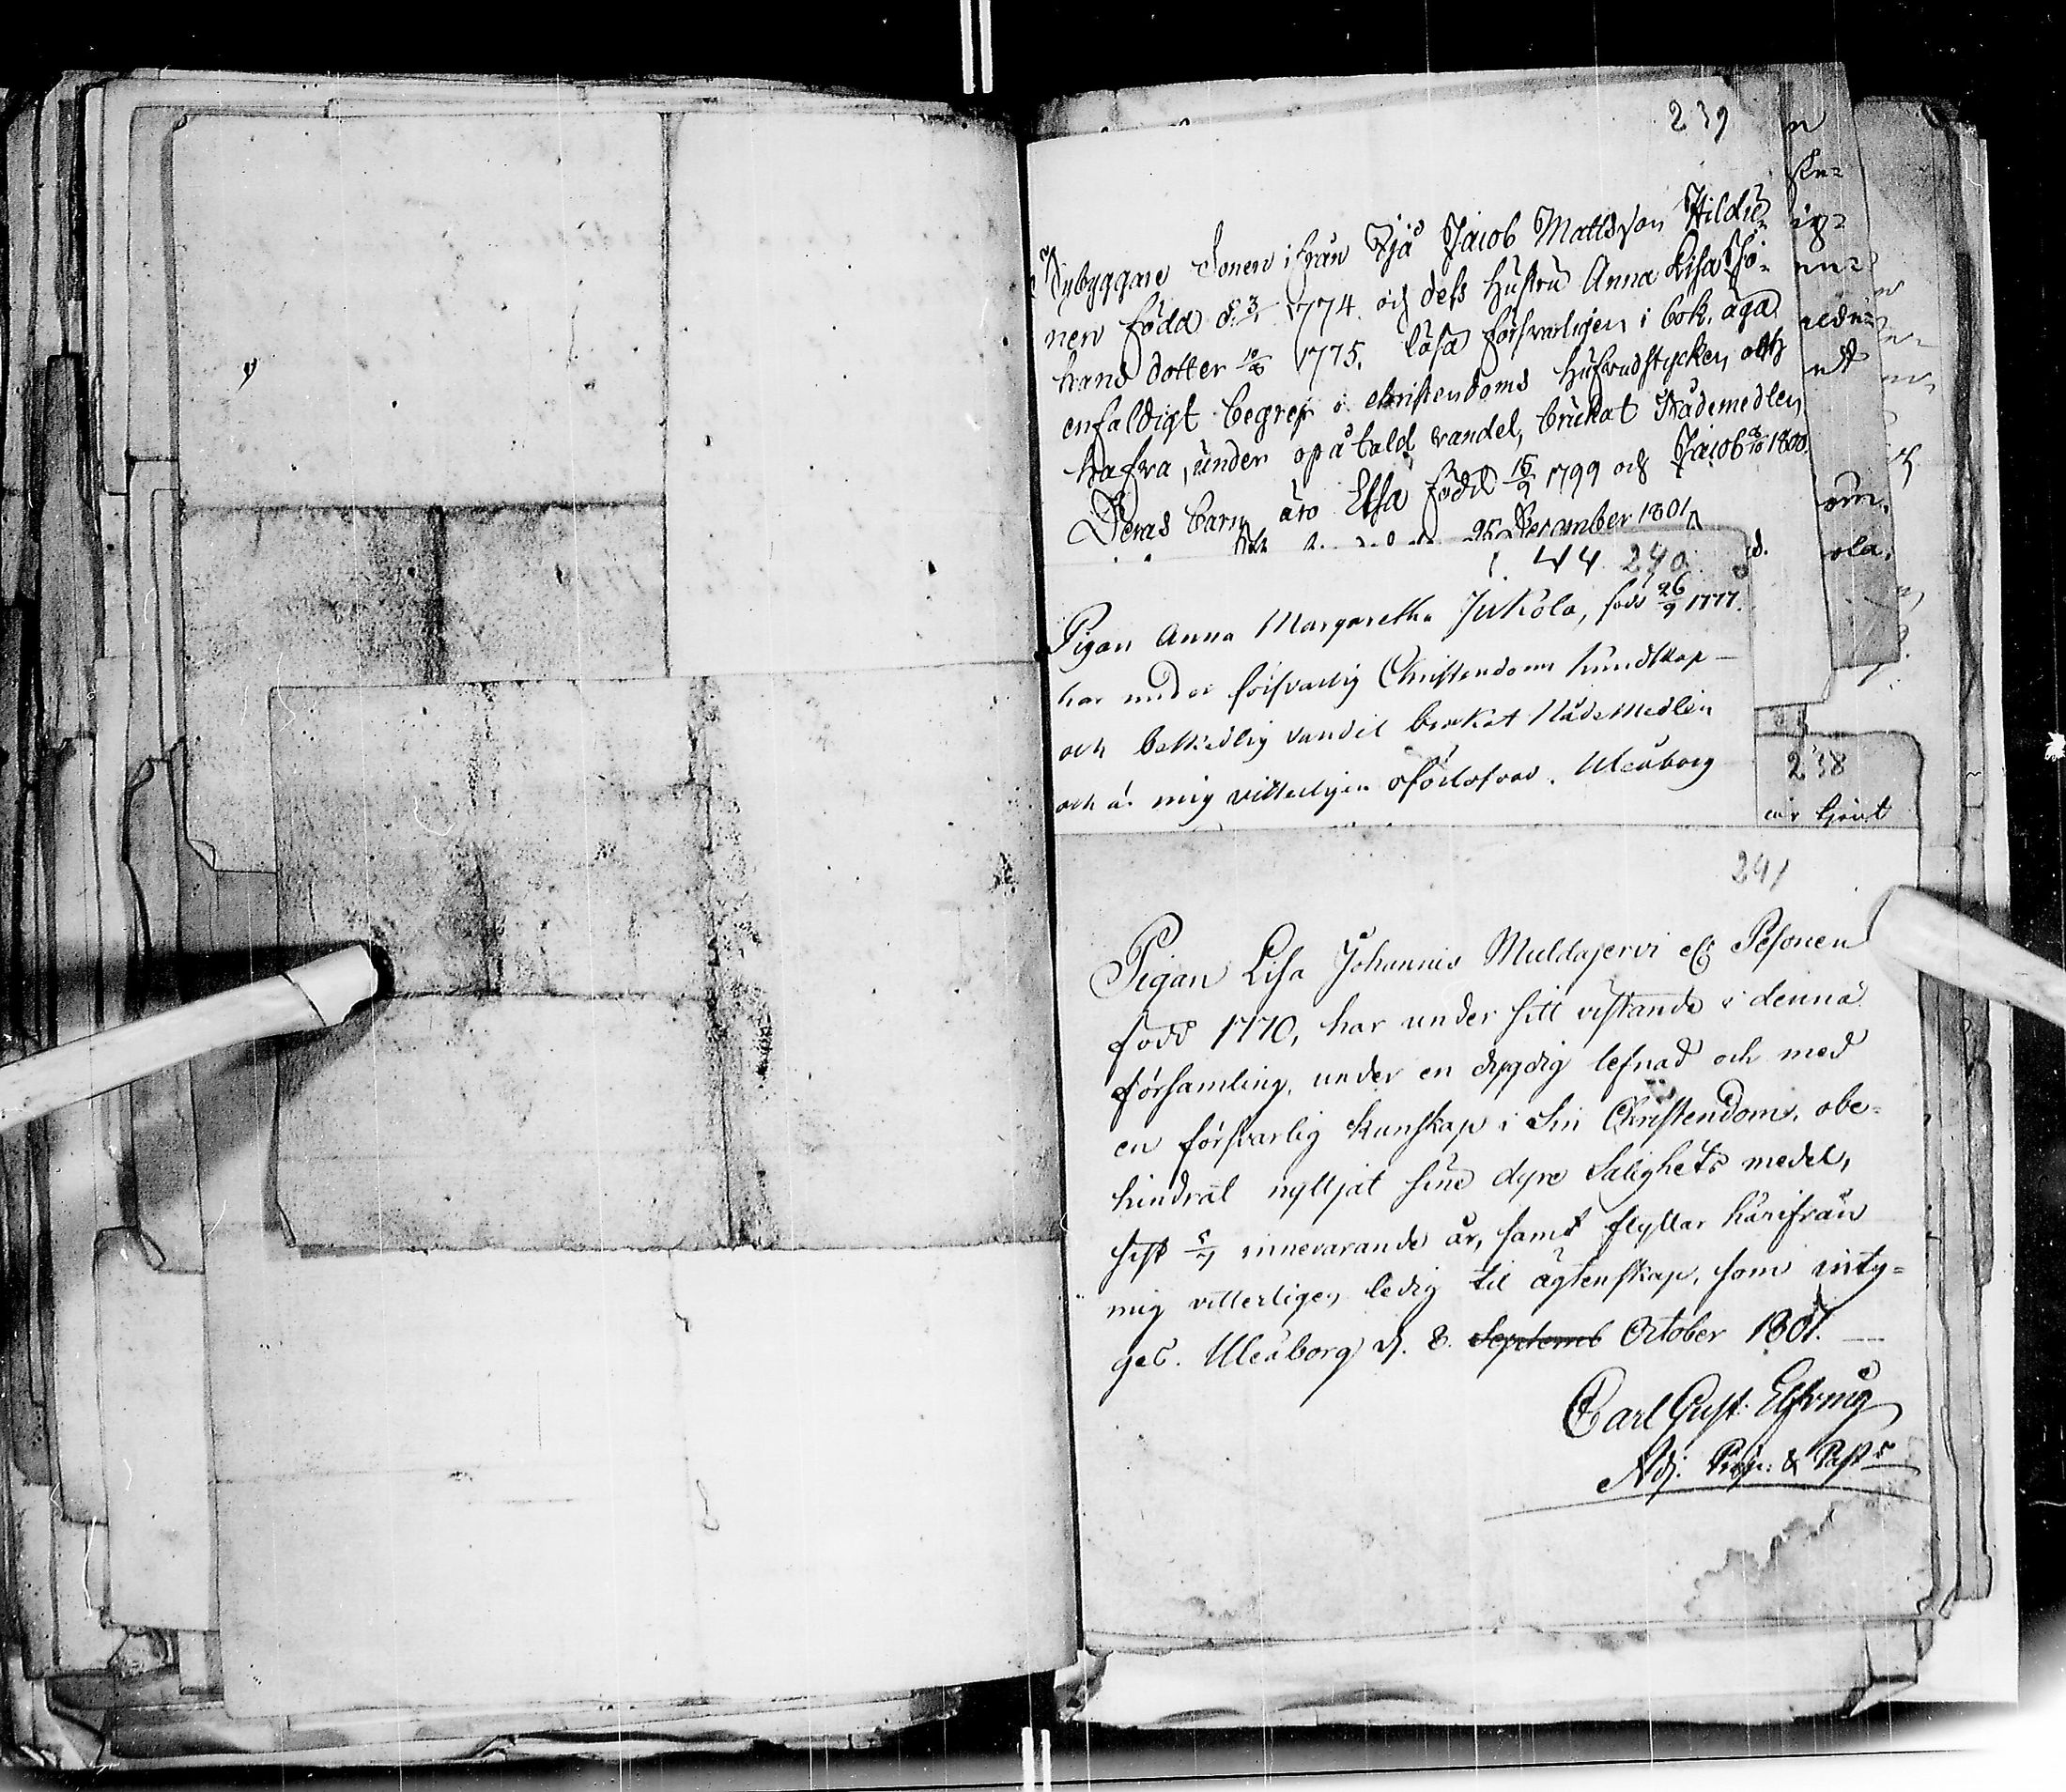 239
Nybyggare Sonen ifrån Ijå Jacob Mattsson Hildu
nen född d. 3/1 1774. och dess Hustru Anna Lisa Jo-
hans dotter 10/8 1775, läsa försvarligen i bok, äga
enfaldigt begrep i christendoms hufvudstycken och
hafva, under opåtald vandel, brukat Nådemedlen
Deras barn äro Elsa född 15/9 1799 och Jacob 1800.
25 December 1801
44 240
Pigan Anna Margaretha Jukola, född 26/9 1777.
har under försvarlig Christendoms kundskap
och beskedlig vandel brukat Nådemedlen
och är mig vitterligen oförlofvad. Uleåborg
238
241
Pigan Lisa Johannis Muldajervi el. Pesonen
född 1770, har under sitt vistande i denna
församling, under en dygdig lefnad och med
en försvarlig kunskap i sin Christendom, obe-
hindrat nyttjat sine dyre Salighets medel,
sist innevarande år, samt flyttar härifrån
mig vitterligen ledig til ägtenskap, som inty-
ges. Uleåborg d. 8. Septemb October 1801.
Carl Gust. Elfving
Adj. &